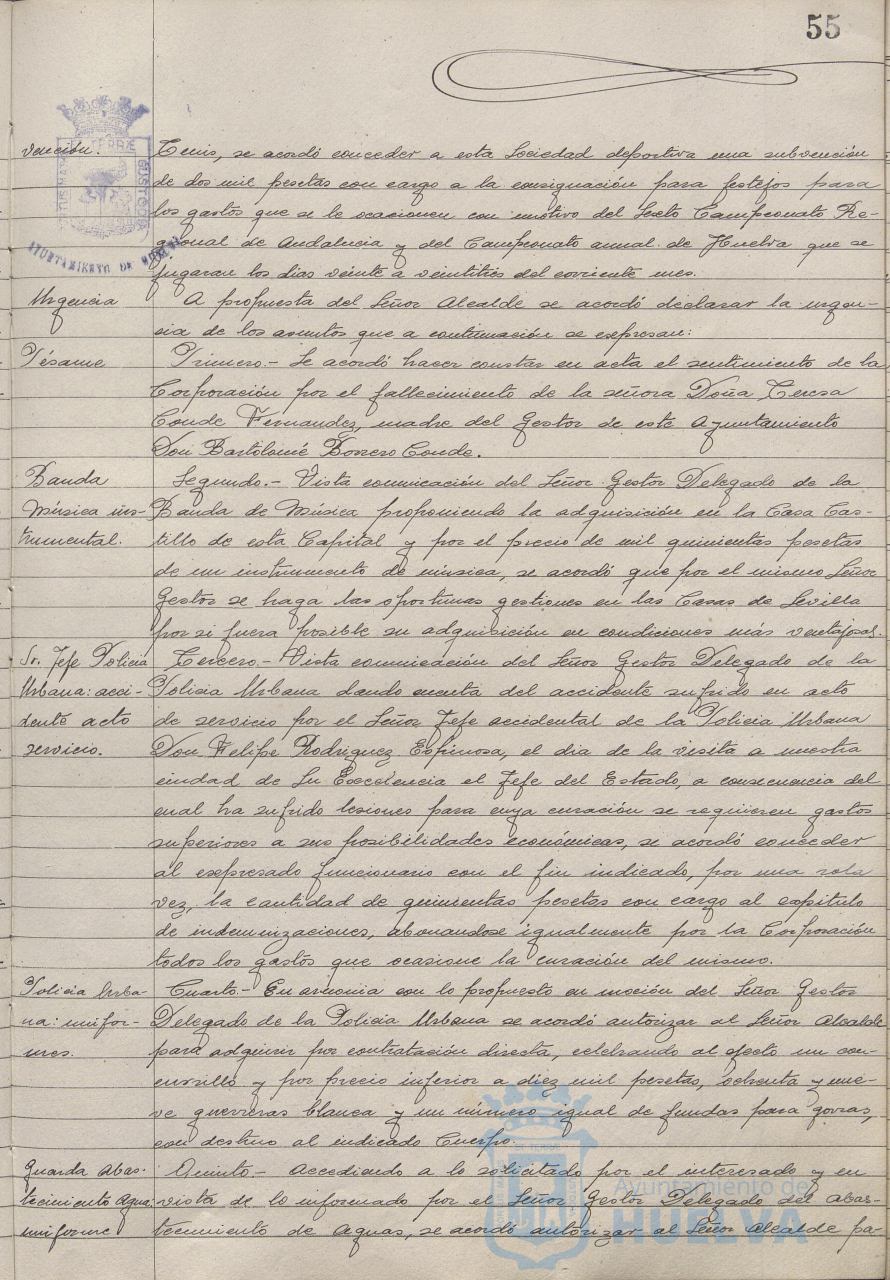 55
vención. Tenis, se acordó conceder a esta Sociedad deportiva una subvención
de dos mil pesetas con cargo a la consignación para festejos para
los gastos que se le ocasionen con motivo del Sexto Campeonato Re-
gional de Andalucia y del Campeonato anual de Huelva que se
jugaran los dias veinte a veintitrés del corriente mes.
AYUNTAMIENTO DE HUELVA
Urgencia A propuesta del Señor Alcalde se acordó declarar la urgen-
cia de los asuntos que a continuación se expresan:
Pésame Primero.- Se acordó hacer constar en acta el sentimiento de la
Corporación por el fallecimiento de la señora Doña Teresa
Conde Fernandez, madre del Gestor de este Ayuntamiento
Don Bartolomé Borrero Conde.
Banda Segundo.- Vista comunicación del Señor Gestor Delegado de la
Música ins- Banda de Música proponiendo la adquisición en la Casa Cas-
trumental. tillo de esta Capital y por el precio de mil quinientas pesetas
de un instrumento de música, se acordó que por el mismo Señor
Gestor se haga las oportunas gestiones en las Casas de Sevilla
por si fuera posible su adquisición en condiciones más ventajosas.
Sr. Jefe Policia Tercero.- Vista comunicación del Señor Gestor Delegado de la
Urbana: acci- Policia Urbana dando cuenta del accidente sufrido en acto
dente acto de servicio por el Señor Jefe accidental de la Policia Urbana
servicio. Don Felipe Rodriguez Espinosa, el dia de la visita a nuestra
ciudad de Su Excelencia el Jefe del Estado, a consecuencia del
cual ha sufrido lesiones para cuya curación se requieren gastos
superiores a sus posibilidades económicas, se acordó conceder
al expresado funcionario con el fin indicado, por una sola
vez, la cantidad de quinientas pesetas con cargo al capitulo
de indemnizaciones, abonandose igualmente por la Corporación
todos los gastos que ocasione la curación del mismo.
Policia Urba- Cuarto.- En armonia con lo propuesto en moción del Señor Gestor
na: unifor- Delegado de la Policia Urbana se acordó autorizar al Señor Alcalde
mes. para adquirir por contratación directa, celebrando al efecto un con-
cursillo y por precio inferior a diez mil pesetas, ochenta y nue-
ve guerreras blanca y un número igual de fundas para gorras,
con destino al indicado Cuerpo.
Guarda Abas- Quinto.- Accediendo a lo solicitado por el interesado y en
tecimiento Agua: vista de lo informado por el Señor Gestor Delegado del Abas-
uniforme tecimiento de Aguas, se acordó autorizar al Señor Alcalde pa-
Ayuntamiento de
HUELVA